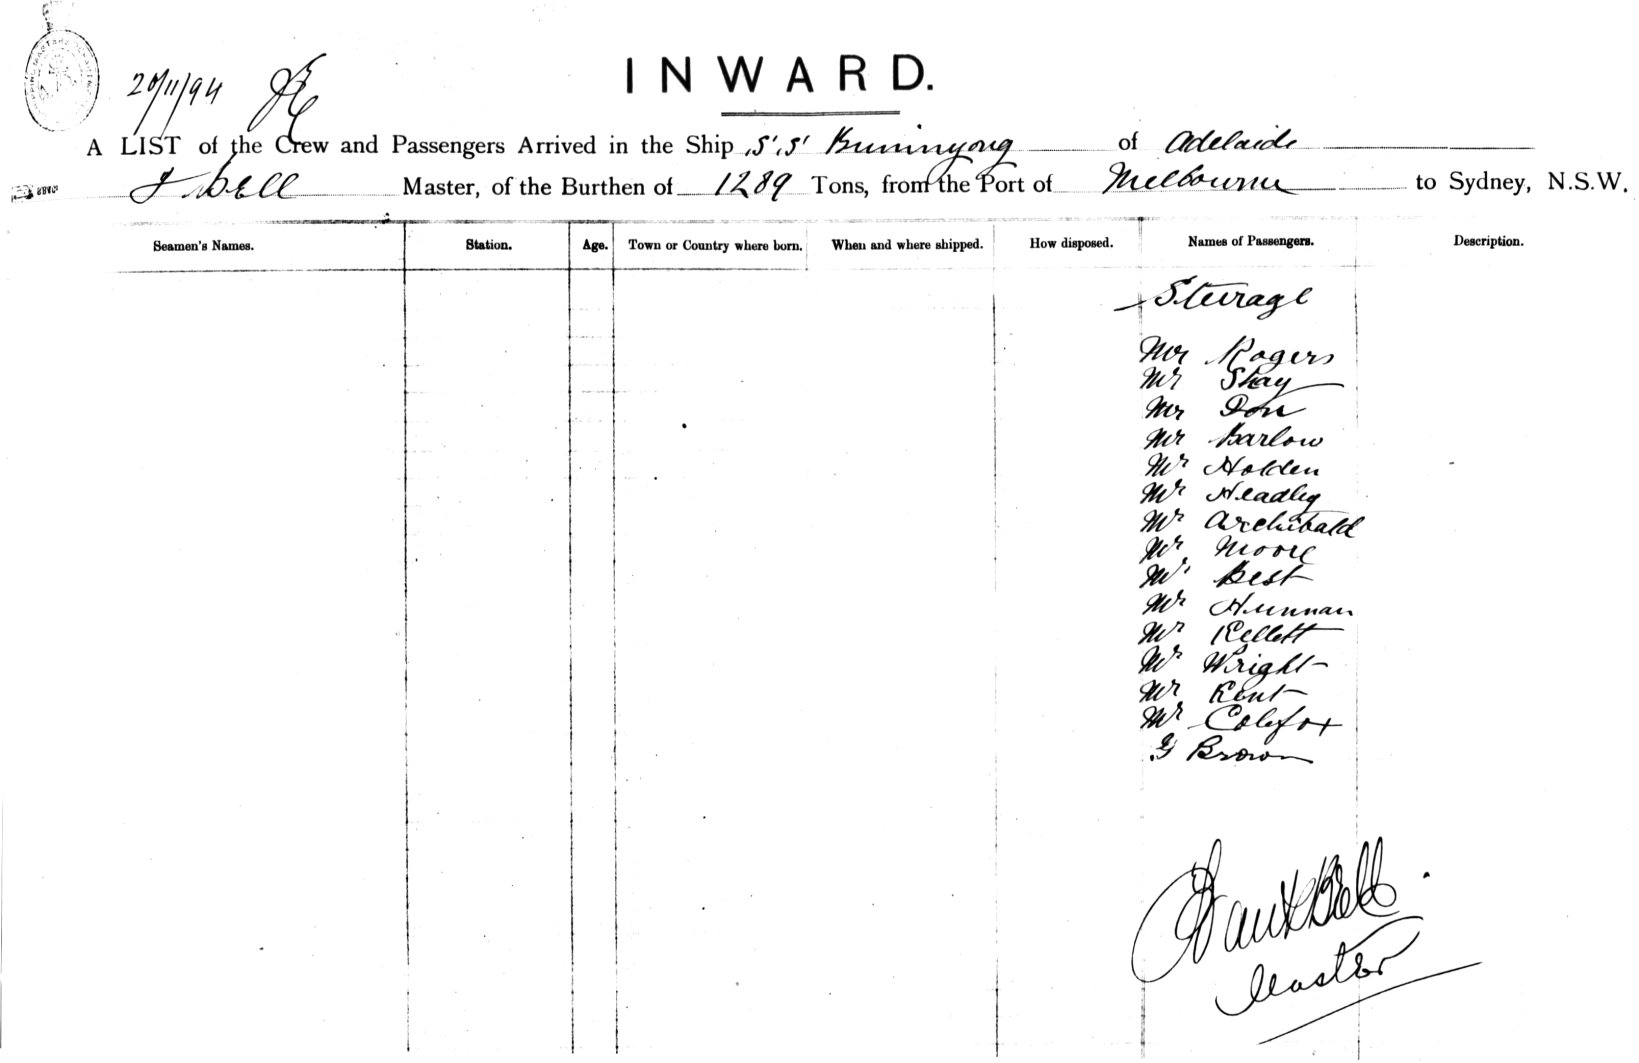 INWARD.
20/11/94
A LIST of the Crew and Passengers Arrived in the Ship S.S. Buninyong of Adelaide
Bell Master, of the Burthen of 1289 Tons, from the Port of Melbourne to Sydney, N.S.W.
Seamen's Names. Station. Age. Town or Country where born. When and where shipped. How disposed. Names of Passengers. Description.
Steerage
Mr Rogers
Mr Shay
Mr Don
Mr Barlow
Mr Holden
Mr Headley
Mr Archibald
Mr Moore
Mr Best
Mr Hunnan
Mr Kellett
Mr Wright
Mr Kent
Mr Colefox
G Brown
Bell
Master